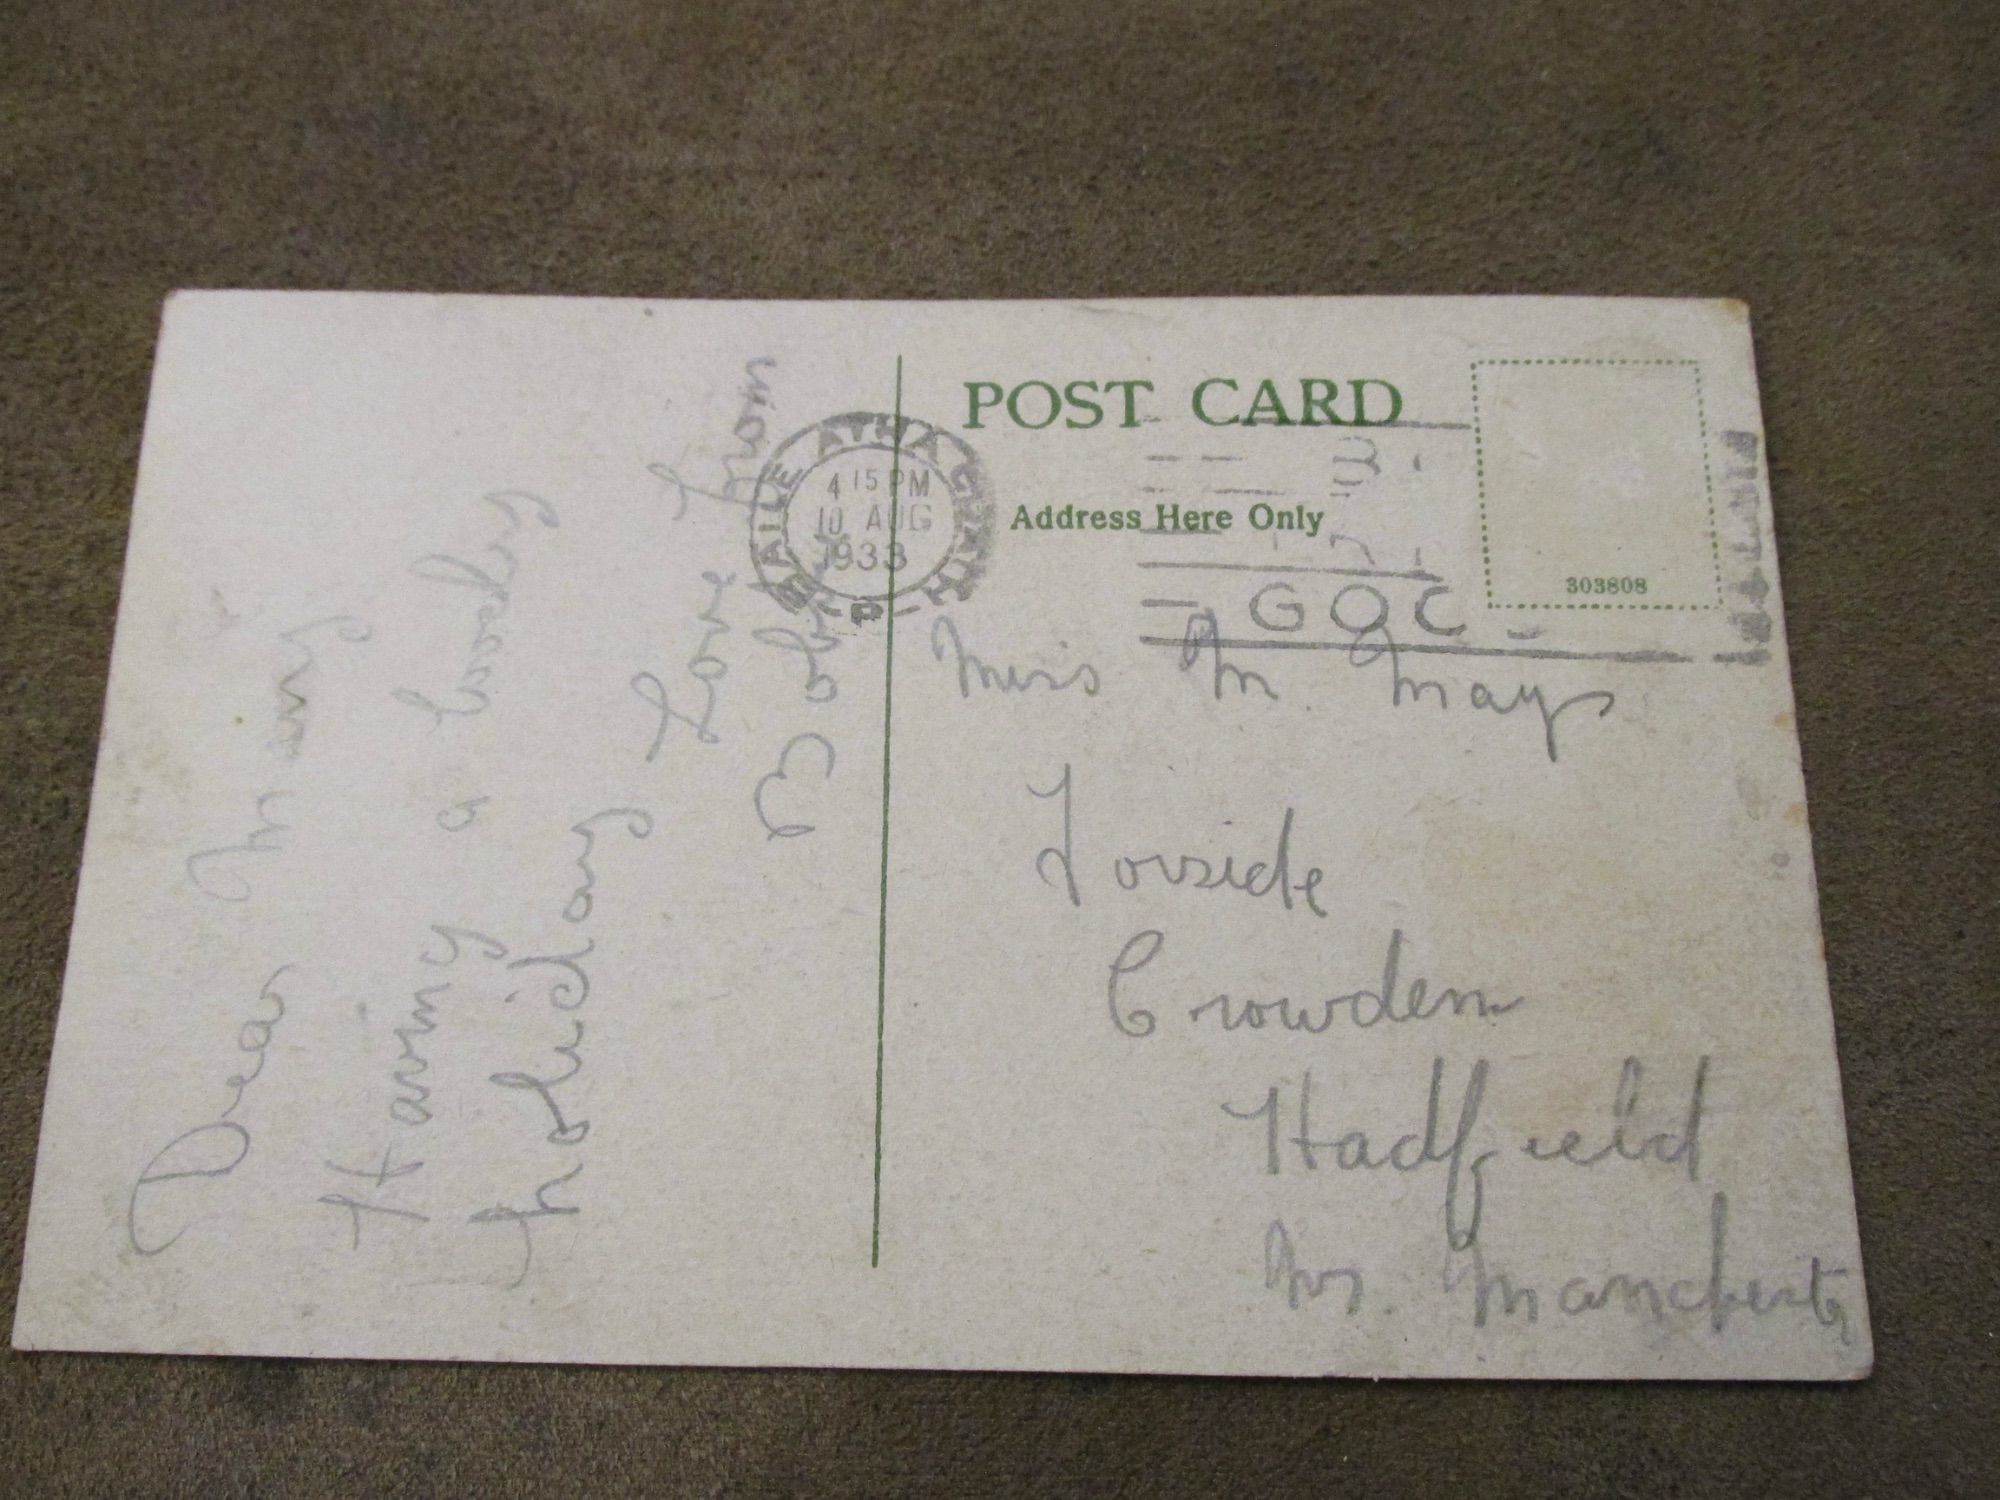 POST CARD
Address Here Only
303808
BAILE ATHA CLIATH
4 15 PM
10 AUG
1933
P
GOC
Dear
Having a
holiday
Love from
Bob
Miss M. Mays
Torside
Crowden
Hadfield
Nr. Manchester